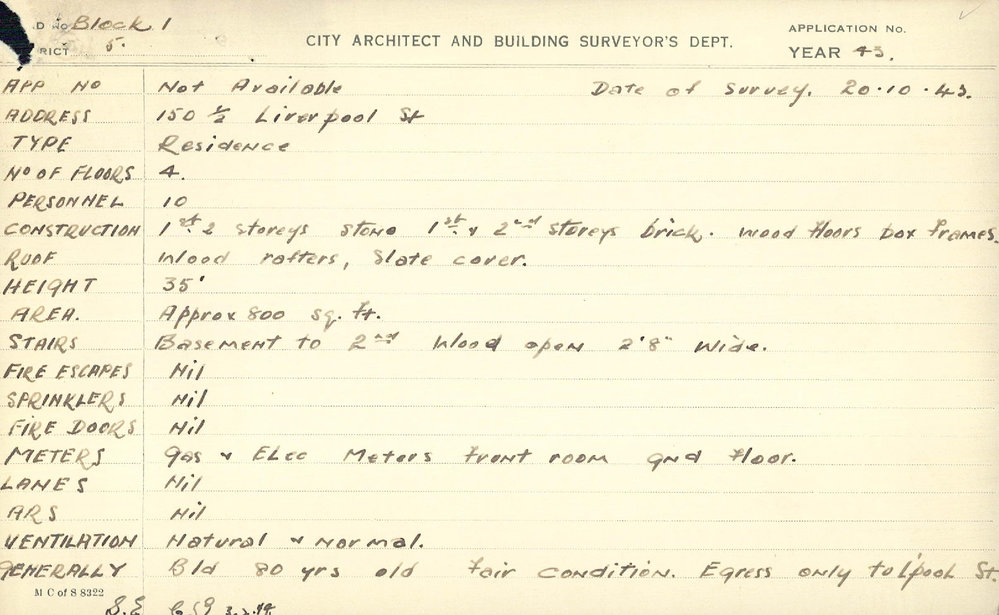 D No Block 1
RICT 5.
CITY ARCHITECT AND BUILDING SURVEYOR'S DEPT.
APPLICATION No.
YEAR 43.
APP NO Not Available Date of Survey. 20.10.43.
ADDRESS 150 ½ Liverpool St
TYPE Residence
No OF FLOORS 4.
PERSONNEL 10
CONSTRUCTION 1st 2 storeys stone 1st & 2nd storeys brick. Wood floors box frames.
ROOF Wood rafters, Slate cover.
HEIGHT 35'
AREA. Approx 800 sq. ft.
STAIRS Basement to 2nd Wood open 2'8" Wide.
FIRE ESCAPES Nil
SPRINKLERS Nil
FIRE DOORS Nil
METERS Gas & Elec Meters front room gnd floor.
LANES Nil
ARS Nil
VENTILATION Natural & Normal.
GENERALLY Bld 80 yrs old fair condition. Egress only to L'pool St.
M C of S 8322
S.E